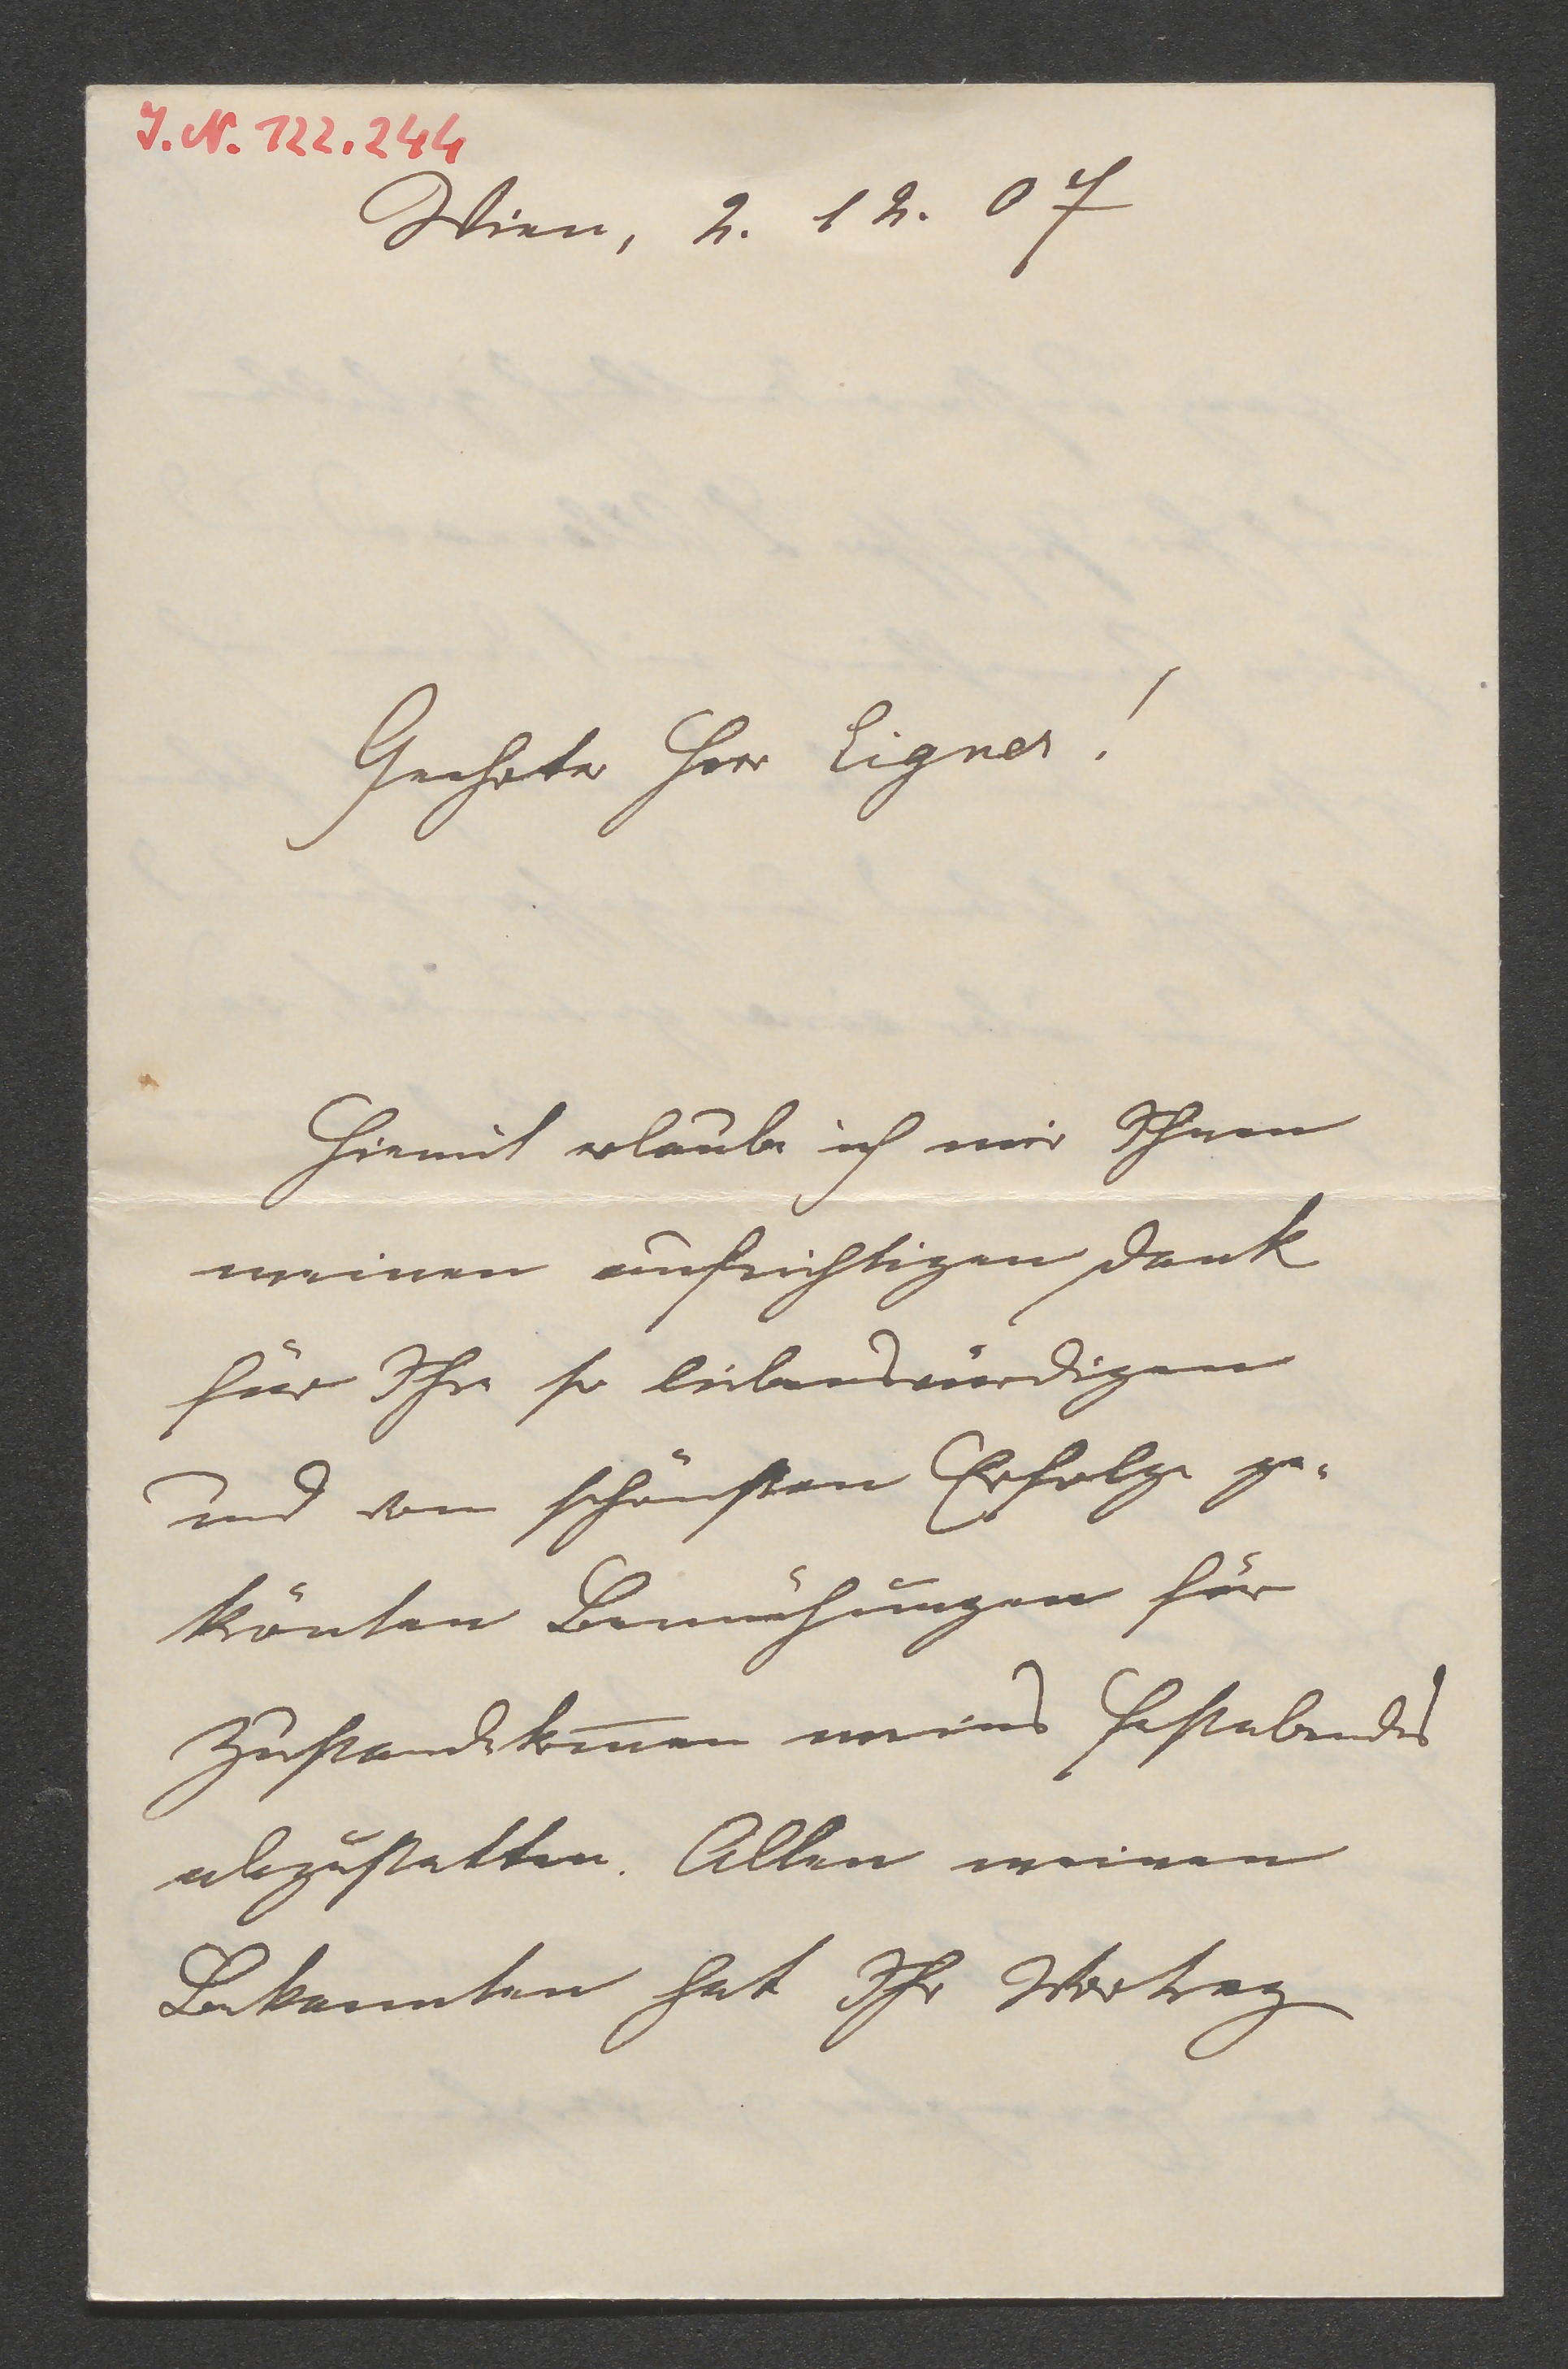 J.N. 122.244
Wien, 2. 12. 07
Geehrter Herr Eigner!
Hiemit erlaube ich mir Ihnen
meinen aufrichtigen Dank
für Ihre so liebenswürdigen
und vom schönsten Erfolge ge-
krönten Bemühungen für
Zustandekom̅en meines Festabendes
abzustatten. Allen meinen
Bekannten hat Ihr Vortrag